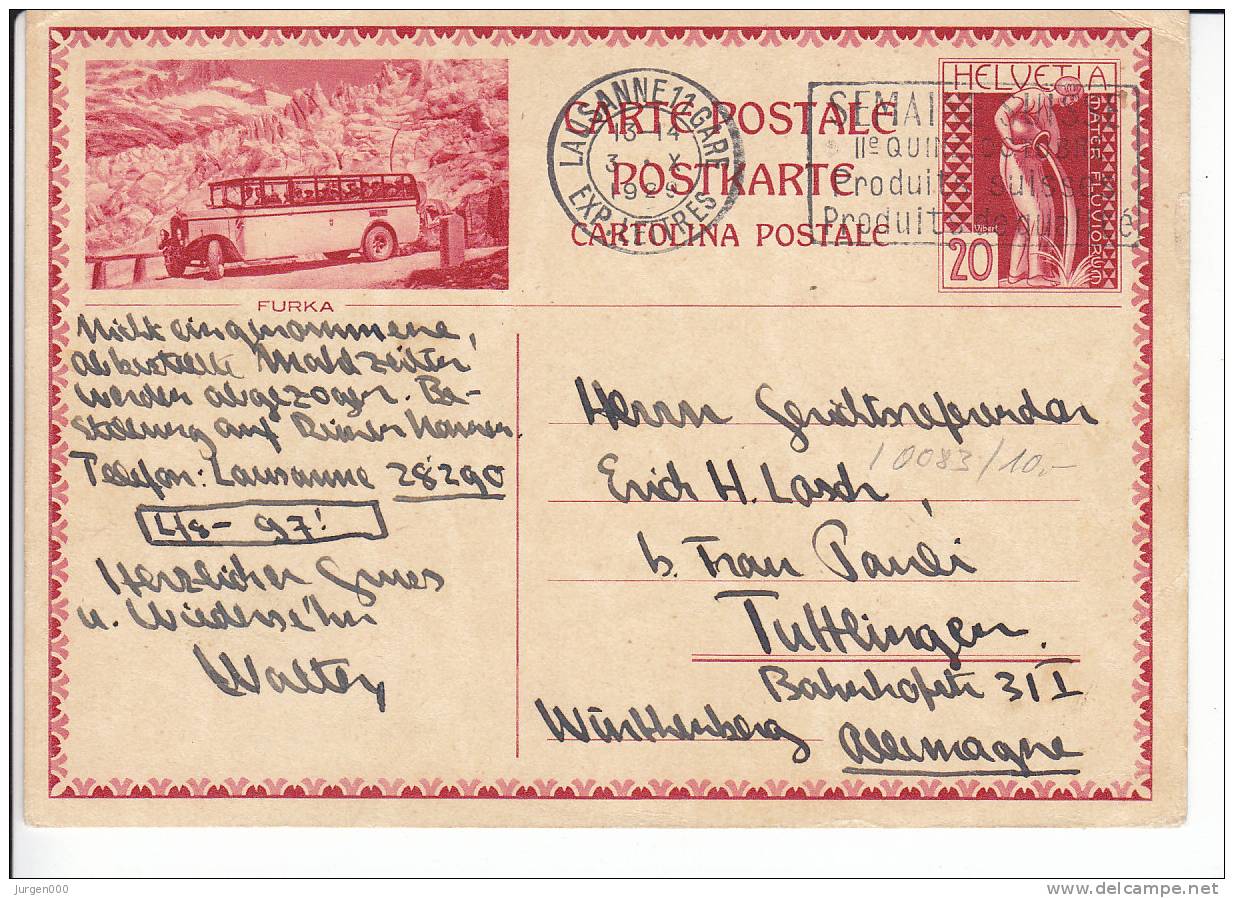 HELVETIA
MATER FLUVIORUM
Vibert
20
CARTE POSTALE
POSTKARTE
CARTOLINA POSTALE
LAUSANNE 1 GARE
13-14
3 X
EXP. LETTRES
SEMAINE SUISSE
IIe QUINZ. OCTOBRE
Produits suisses
Produits de qualité
FURKA
Nicht eingenommene,
abbestellte Mahlzeiten
werden abgezogen. Be-
stellung auf Deinen Namen.
Telefon: Lausanne 28290
Herzlichen Gruss
u. Wiedersehn
Walter
Herrn Gerichtsreferendar
Erich H. Lasch,
b. Frau Pauli
Tuttlingen.
Bahnhofstr 31 I
Württemberg Allemagne
10083/10.-
Jurgen000
www.delcampe.net